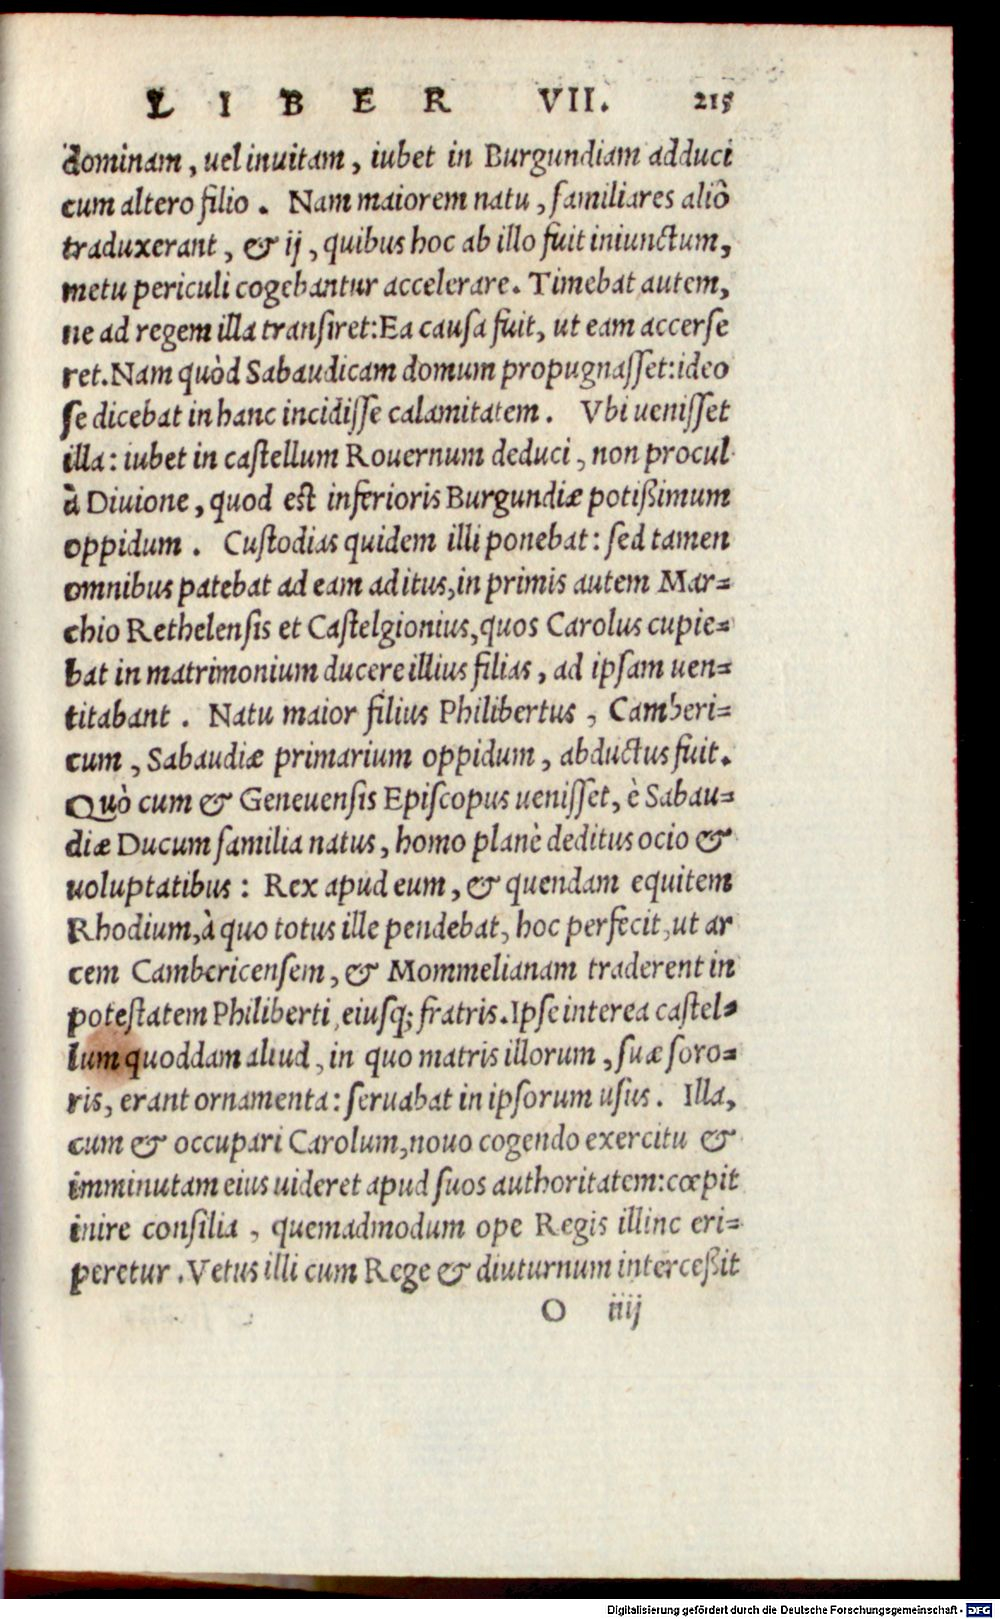 LIBER VII. 215
dominam, uel inuitam, iubet in Burgundiam adduci
cum altero filio. Nam maiorem natu, familiares aliò
traduxerant, & ij, quibus hoc ab illo fuit iniunctum,
metu periculi cogebantur accelerare. Timebat autem,
ne ad regem illa transiret: Ea causa fuit, ut eam accerse
ret. Nam quòd Sabaudicam domum propugnasset: ideo
se dicebat in hanc incidisse calamitatem. Vbi uenisset
illa: iubet in castellum Rouernum deduci, non procul
à Diuione, quod est inferioris Burgundiæ potißimum
oppidum. Custodias quidem illi ponebat: sed tamen
omnibus patebat ad eam aditus, in primis autem Mar=
chio Rethelensis et Castelgionius, quos Carolus cupie=
bat in matrimonium ducere illius filias, ad ipsam uen=
titabant. Natu maior filius Philibertus, Camberi=
cum, Sabaudiæ primarium oppidum, abductus fuit.
Quò cum & Geneuensis Episcopus uenisset, è Sabau=
diæ Ducum familia natus, homo planè deditus ocio &
uoluptatibus: Rex apud eum, & quendam equitem
Rhodium, à quo totus ille pendebat, hoc perfecit, ut ar
cem Cambericensem, & Mommelianam traderent in
potestatem Philiberti, eiusq; fratris. Ipse interea castel=
lum quoddam aliud, in quo matris illorum, suæ soro=
ris, erant ornamenta: seruabat in ipsorum usus. Illa,
cum & occupari Carolum, nouo cogendo exercitu &
imminutam eius uideret apud suos authoritatem: cœpit
inire consilia, quemadmodum ope Regis illinc eri=
peretur. Vetus illi cum Rege & diuturnum interceßit
O iiij
Digitalisierung gefördert durch die Deutsche Forschungsgemeinschaft - DFG